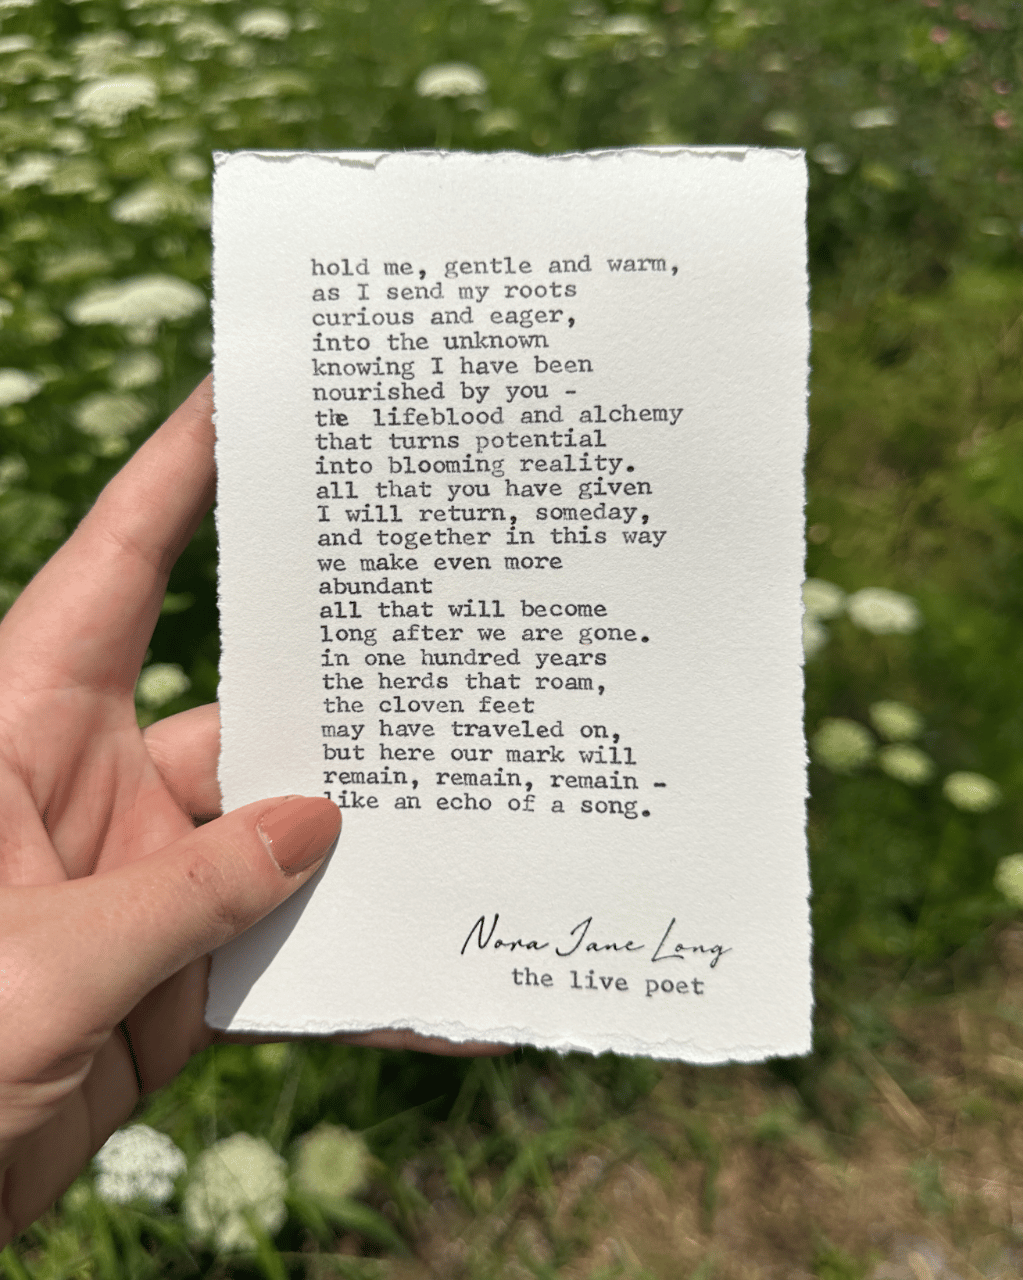 hold me, gentle and warm,
as I send my roots
curious and eager,
into the unknown
knowing I have been
nourished by you -
the lifeblood and alchemy
that turns potential
into blooming reality.
all that you have given
I will return, someday,
and together in this way
we make even more
abundant
all that will become
long after we are gone.
in one hundred years
the herds that roam,
the cloven feet
may have traveled on,
but here our mark will
remain, remain, remain -
like an echo of a song.
Nora Jane Long
the live poet